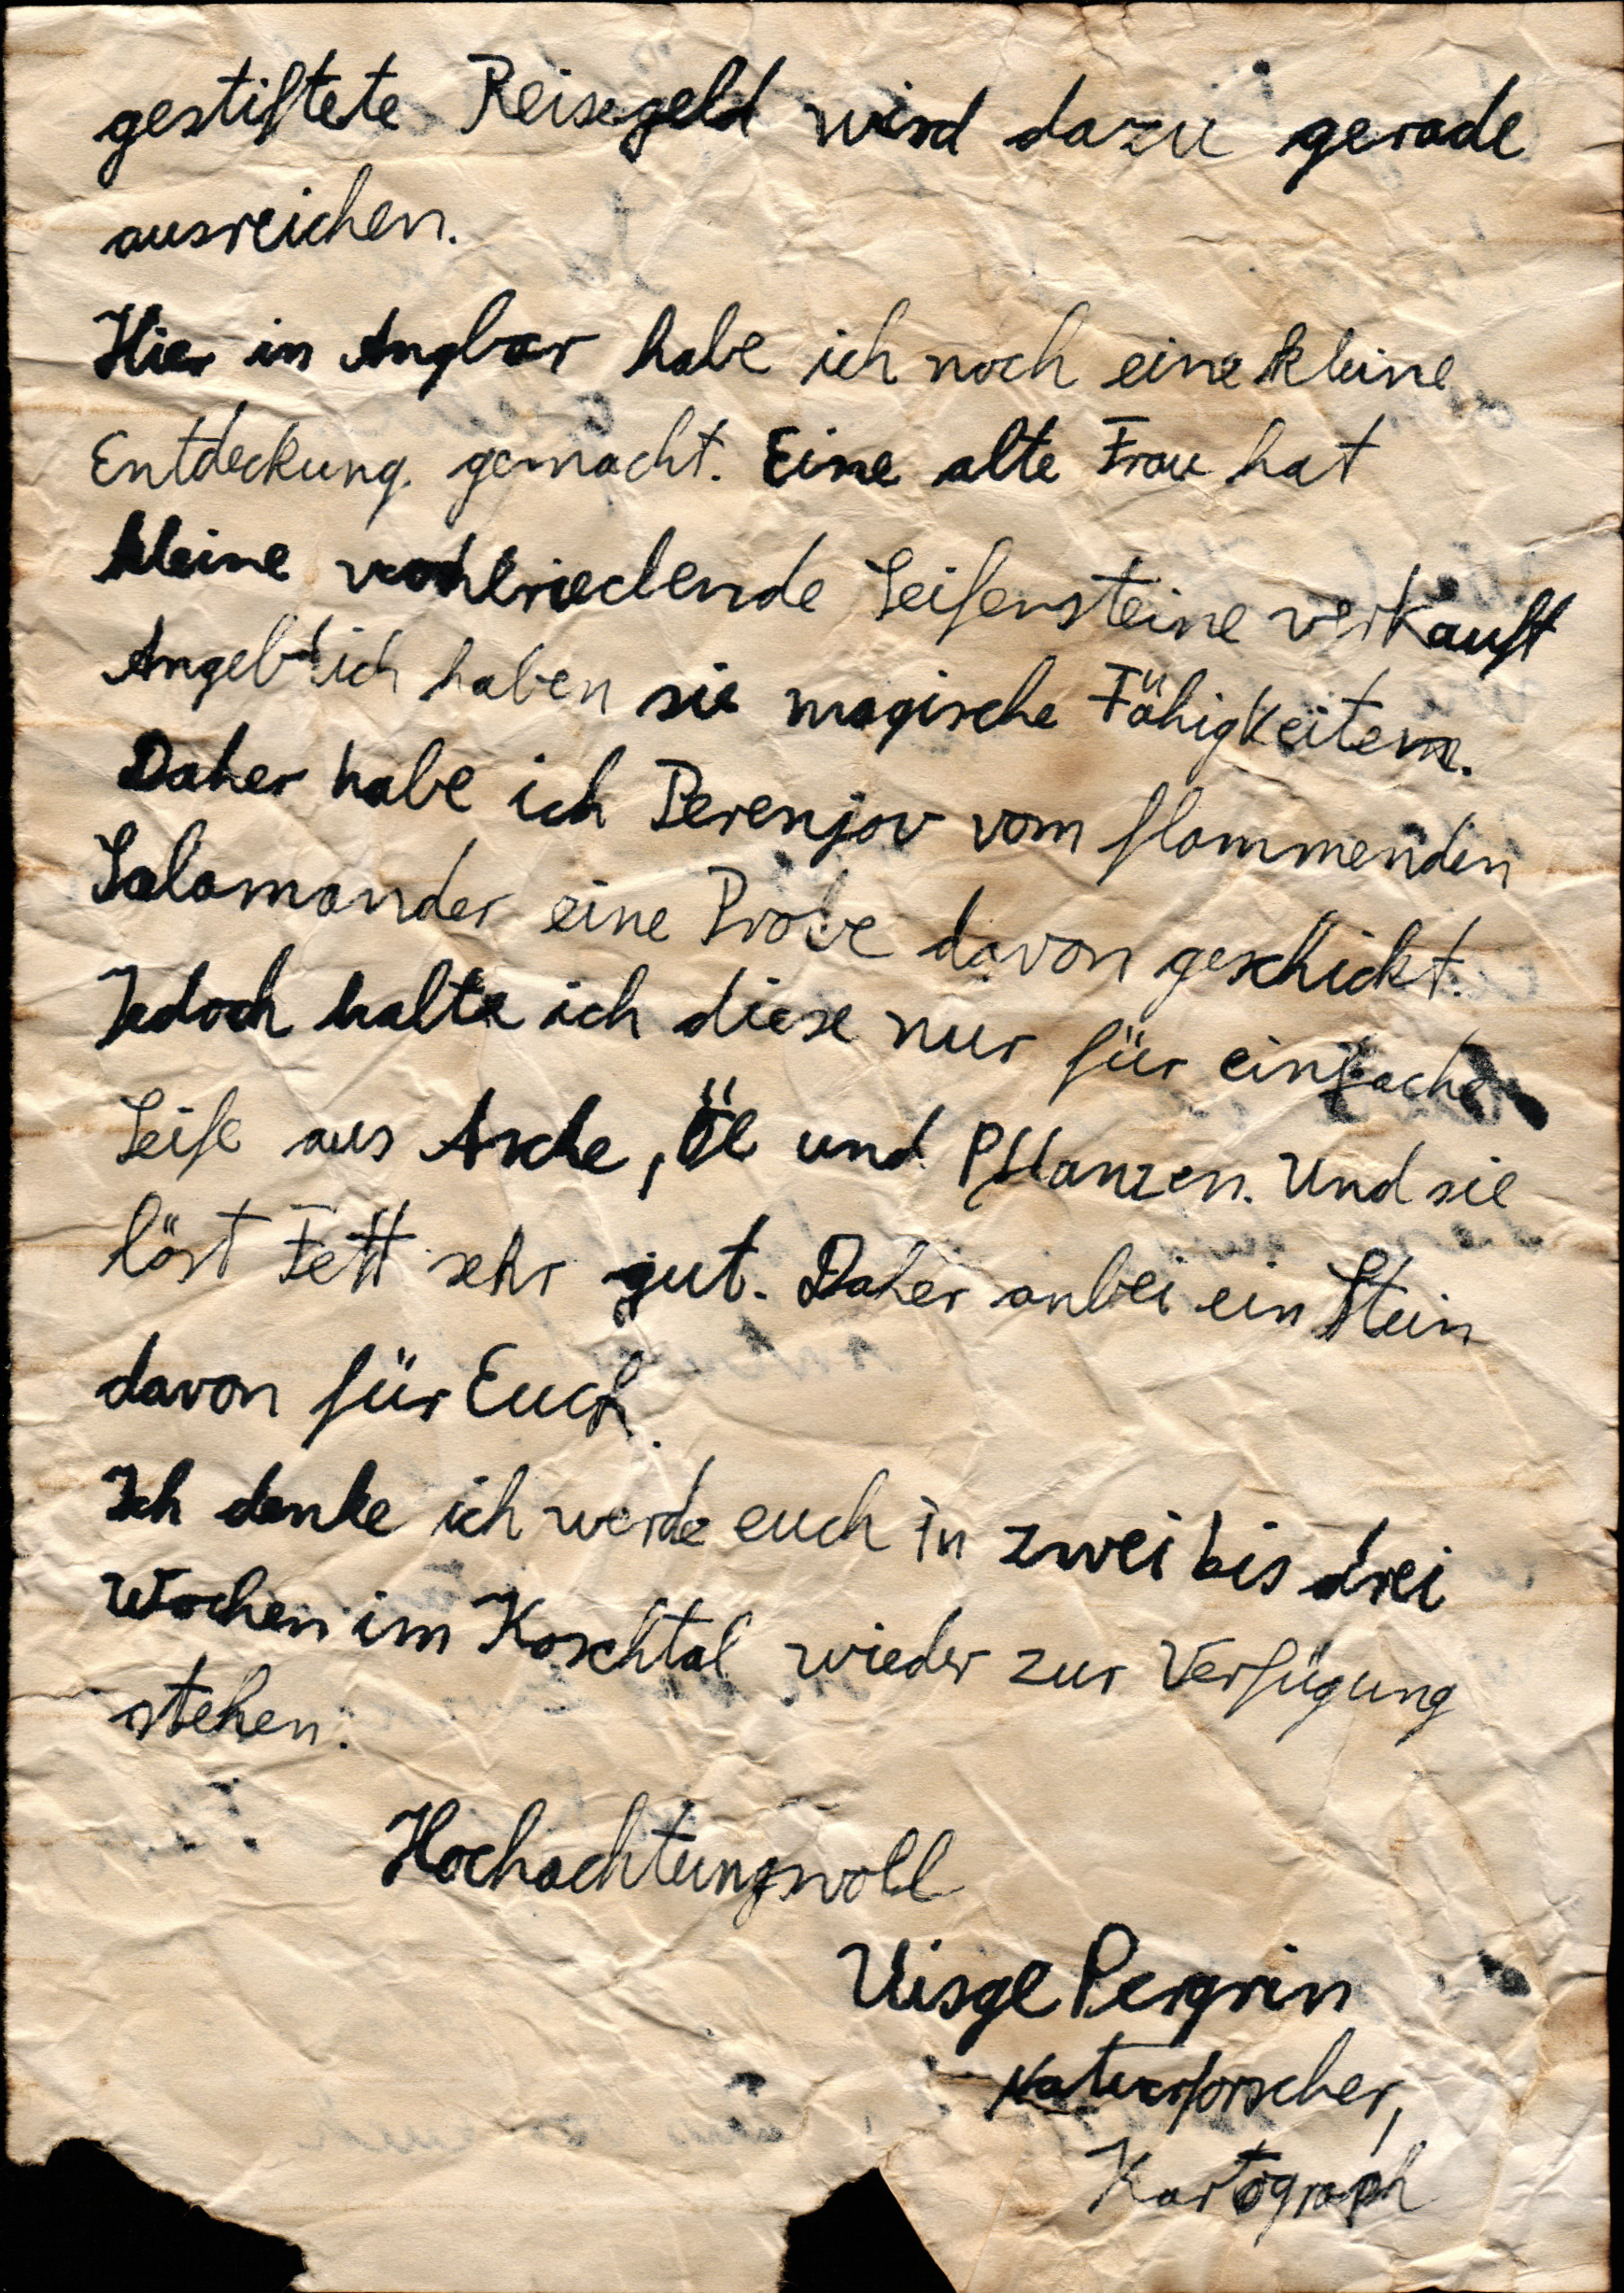 gestiftete Reisegeld wird dazu gerade
ausreichen.
Hier in Angbar habe ich noch eine kleine
Entdeckung gemacht. Eine alte Frau hat
kleine wohlriechende Seifensteine verkauft
Angeblich haben sie magische Fähigkeiten.
Daher habe ich Perenjov vom flammenden
Salamander eine Probe davon geschickt.
Jedoch halte ich diese nur für einfache
Seife aus Asche, Öl und Pflanzen. Und sie
löst Fett sehr gut. Daher anbei ein Stein
davon für Euch.
Ich denke ich werde euch in zwei bis drei
Wochen im Koschtal wieder zur Verfügung
stehen.
Hochachtungsvoll
Uisge Pergrin
Naturforscher,
Kartograph